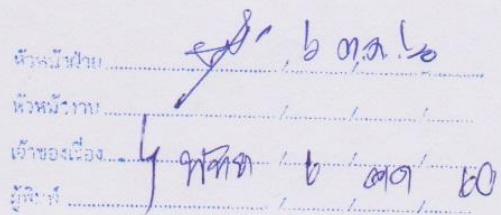 หัวหน้าฝ่าย ๖ ต.ค. ๖๐
หัวหน้างาน / / /
เจ้าของเรื่อง / ๖ / ตค / ๖๐
ผู้พิมพ์ / / /